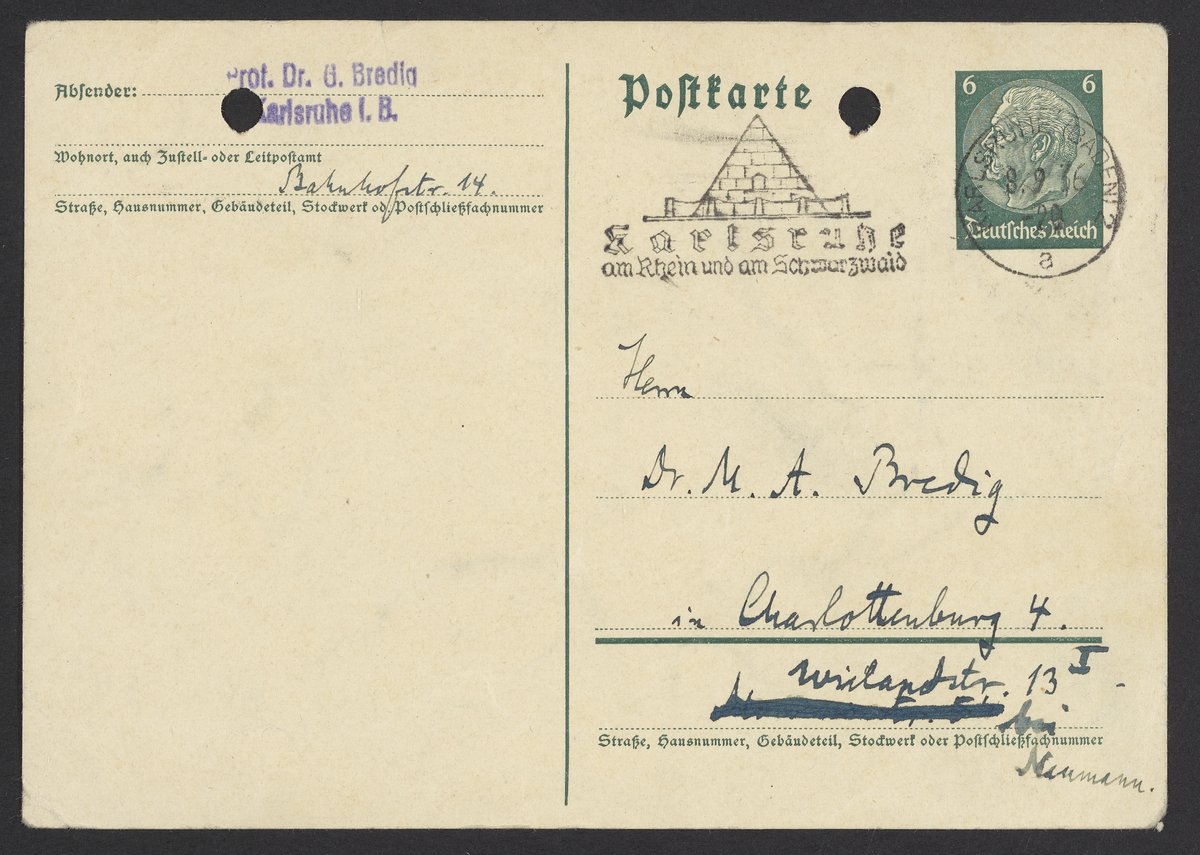 Absender:
Prof. Dr. G. Bredig
Karlsruhe i. B.
Wohnort, auch Zustell- oder Leitpostamt
Bahnhofstr. 14.
Straße, Hausnummer, Gebäudeteil, Stockwerk od. Postschließfachnummer
Postkarte
6 6
Deutsches Reich
KARLSRUHE (BADEN) 2
8.9.36
-20
a
Karlsruhe
am Rhein und am Schwarzwald
Herrn
Dr. M. A. Bredig
in Charlottenburg 4.
Wielandstr. 13 I
bei
Straße, Hausnummer, Gebäudeteil, Stockwerk oder Postschließfachnummer
Naumann.